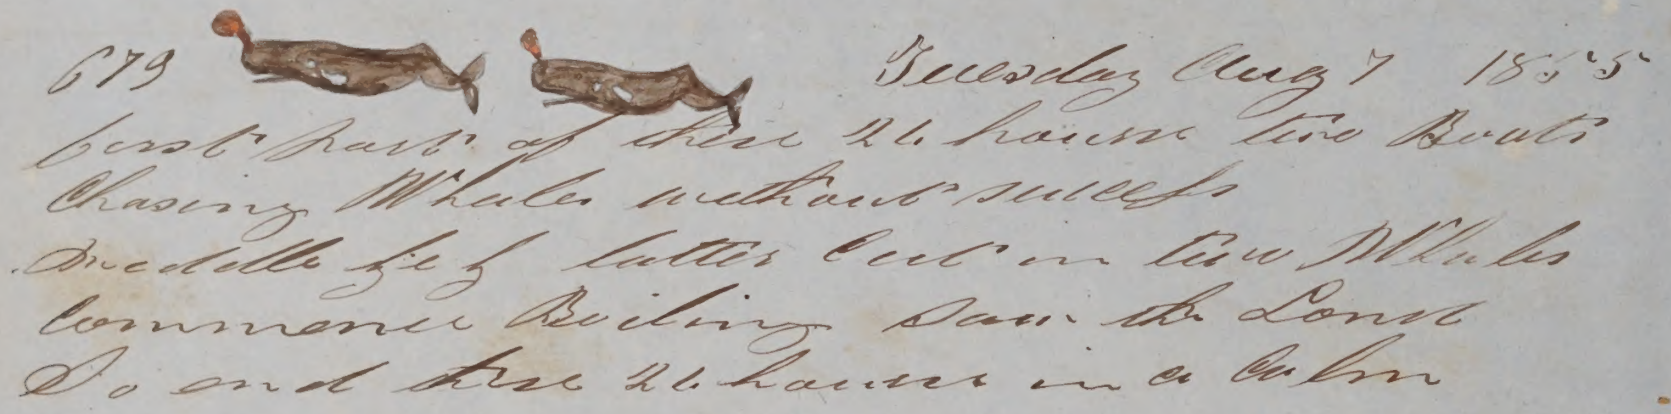 679 Tuesday Aug 7 1855
first part of these 24 hours two Boats
Chasing Whales without success
Middle latter Cut in two Whales
Commence Boiling Saw the Land
So end these 24 hours in a Calm